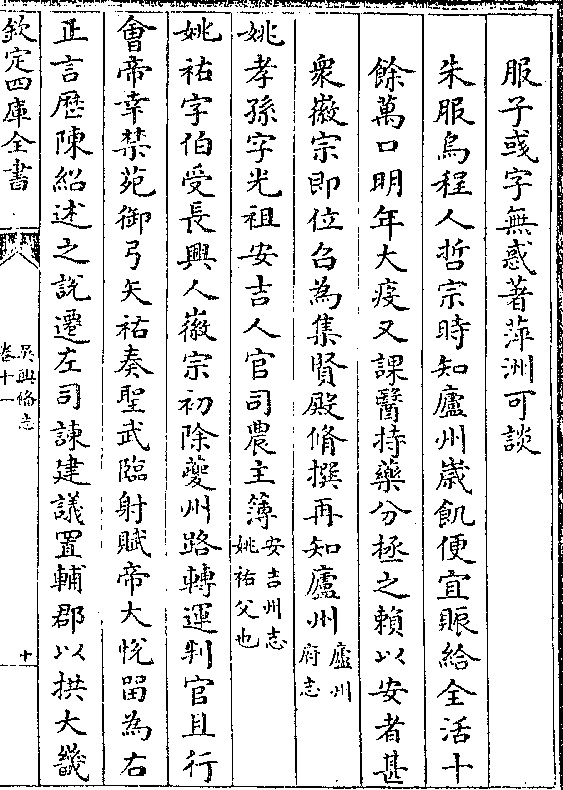 服子彧字無惑著萍洲可談
朱服烏程人哲宗時知廬州歳飢便宜賑給全活十
餘萬口明年大疫又課醫持藥分拯之賴以安者甚
衆徽宗即位召為集賢殿脩撰再知廬州廬州府志
姚孝孫字光祖安吉人官司農主簿安吉州志姚祐父也
姚祐字伯受長興人徽宗初除夔州路轉運判官且行
會帝幸禁苑御弓矢祐奏聖武臨射賦帝大悅留為右
正言歷陳紹述之說遷左司諫建議置輔郡以拱大畿
欽定四庫全書
吳興備志
卷十一
十